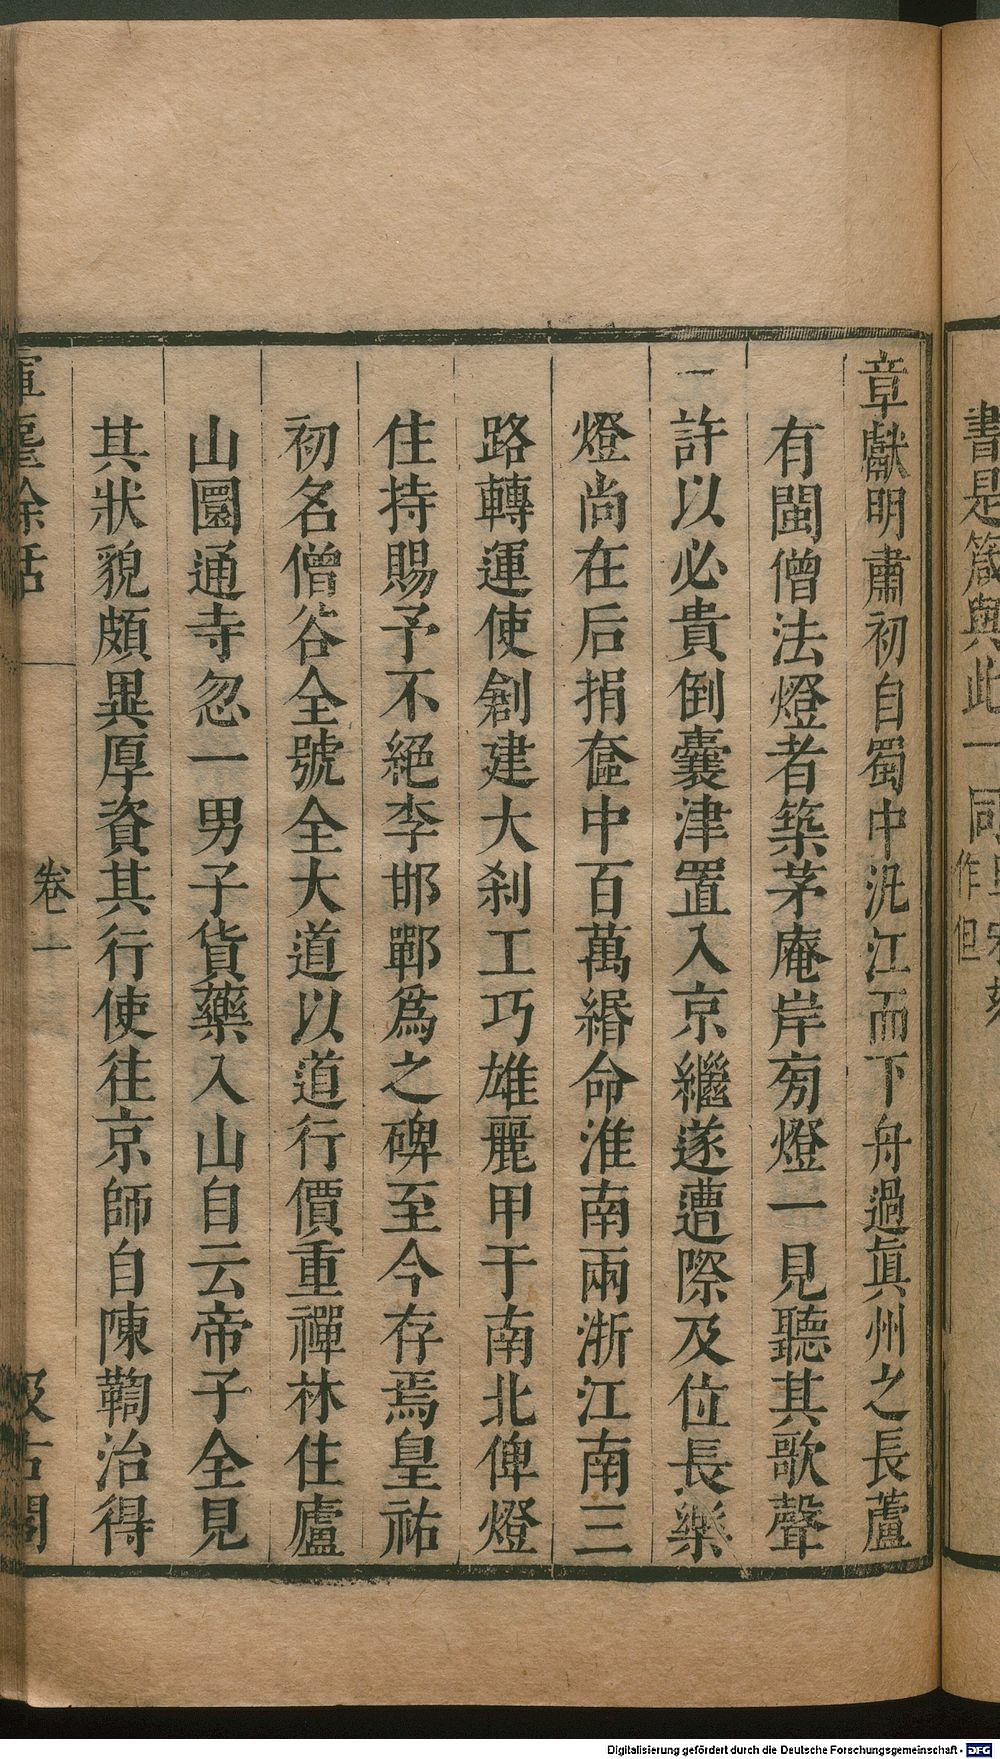 書是箴與此一同
作但
章獻明肅初自蜀中汎江而下舟過眞州之長蘆
有閩僧法燈者築茅庵岸旁燈一見聽其歌聲
許以必貴倒囊津置入京繼遂遭際及位長樂
燈尚在后捐奩中百萬緡命淮南兩浙江南三
路轉運使創建大刹工巧雄麗甲于南北俾燈
住持賜予不絕李邯鄲爲之碑至今存焉皇祐
初名僧谷全號全大道以道行價重禪林住廬
山圜通寺忽一男子貨藥入山自云帝子全見
其狀貌頗異厚資其行使往京師自陳鞫治得
卷一
Digitalisierung gefördert durch die Deutsche Forschungsgemeinschaft - DFG